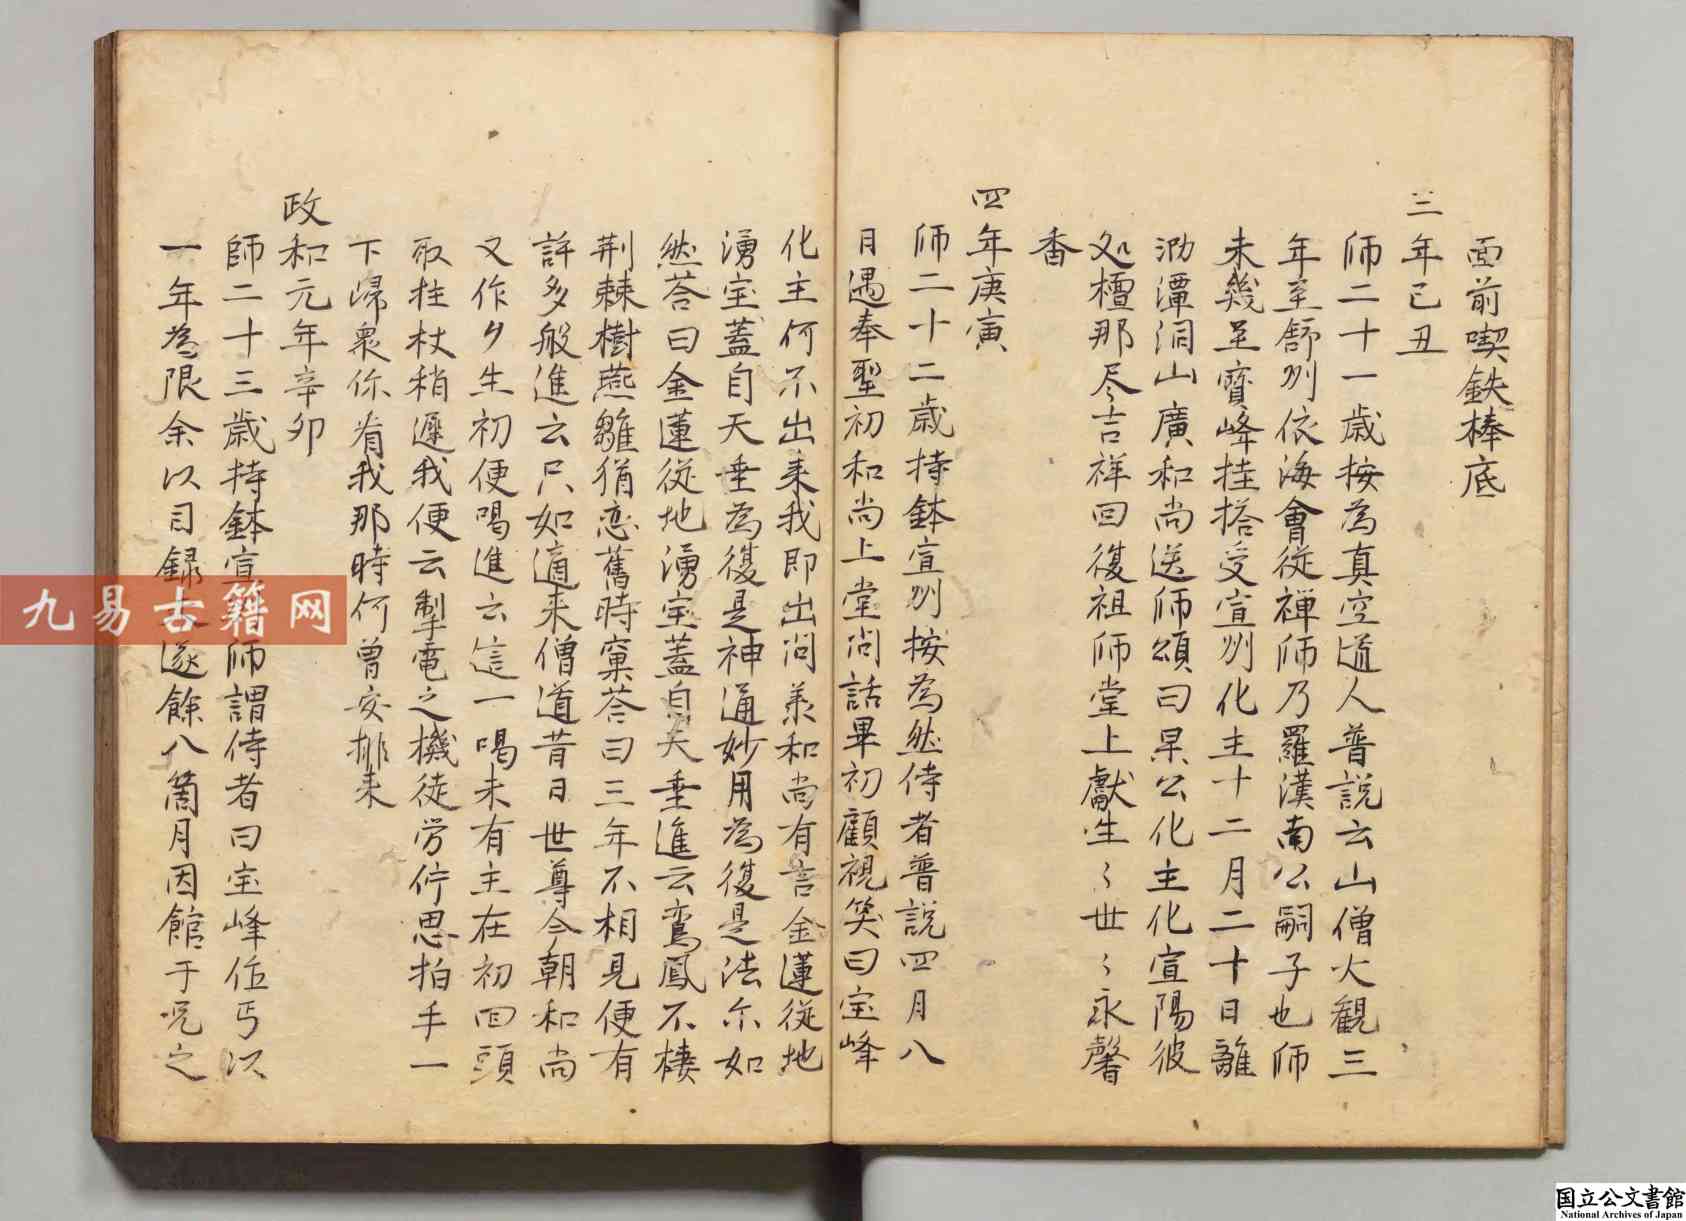 面前喫鉄棒底
三年己丑
師二十一歳按為真空道人普説云山僧大観三
年至舒州依海會従禅師乃羅漢南公嗣子也師
未幾至寳峰挂搭受宣州化主十二月二十日離
泐潭洞山廣和尚送師頌曰杲公化主化宣陽彼
処檀那尽吉祥回復祖師堂上獻生〻世〻永馨
香
四年庚寅
師二十二歳持鉢宣州按為然侍者普説四月八
日遇奉聖初和尚上堂問話畢初顧視笑曰宝峰
化主何不出来我即出問羕和尚有言金蓮従地
湧宝蓋自天垂為復是神通妙用為復是法尓如
然荅曰金蓮従地湧宝蓋自天垂進云鸞鳳不棲
荆棘樹燕雛猶恋舊時窠荅曰三年不相見便有
許多般進云只如適来僧道昔日世尊今朝和尚
又作夕生初便喝進云這一喝未有主在初回頭
取拄杖稍遲我便云掣電之機徒労佇思拍手一
下帰衆你看我那時何曽安排来
政和元年辛卯
師二十三歳持鉢宣 師謂侍者曰宝峰作丐以
一年為限余以目録 遂餘八箇月因館于 之
九易古籍网
国立公文書館
National Archives of Japan